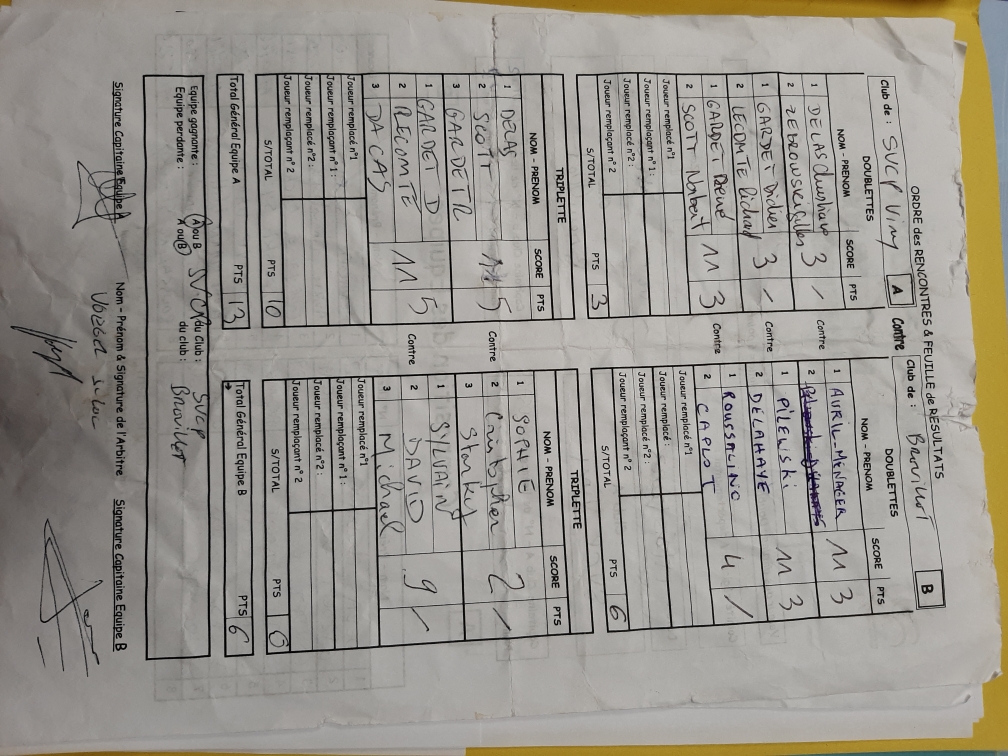 ORDRE des RENCONTRES & FEUILLE de RESULTATS
Club de : SVCP Viry A Contre Club de : Brouillot B
DOUBLETTES
NOM - PRENOM SCORE PTS
1 DELAS 3 /
2 ZEBROWSKI Gilles
1 GARDET Didier 3 /
2 LECOMTE Richard
1 GARDET René 11 3
2 SCOTT Norbert
Joueur remplacé n°1
Joueur remplaçant n°1 :
Joueur remplacé n°2 :
Joueur remplaçant n° 2
S/TOTAL PTS 3
TRIPLETTE
NOM - PRENOM SCORE PTS
1 DELAS
2 SCOTT 11 5
3 GARDET R
1 GARDET D
2 RECOMTE 11 5
3 DACAS
Joueur remplacé n°1
Joueur remplaçant n°1 :
Joueur remplacé n°2 :
Joueur remplaçant n° 2
S/TOTAL PTS 10
Total Général Equipe A PTS 13
DOUBLETTES
NOM - PRENOM SCORE PTS
Contre 1 AVRIL-MENAGER 11 3
2
Contre 1 PILEWSKI 11 3
2 DELAHAYE
Contre 1 ROUSSALINO 4 /
2 CAPLOT
Joueur remplacé n°1
Joueur remplaçant n°1 :
Joueur remplacé n°2 :
Joueur remplaçant n° 2
S/TOTAL PTS 6
TRIPLETTE
NOM - PRENOM SCORE PTS
1 SOPHIE
Contre 2 Christopher 2 /
3
1 SYLVAIN
Contre 2 DAVID 9 /
3 Michael
Joueur remplacé n°1
Joueur remplaçant n°1 :
Joueur remplacé n°2 :
Joueur remplaçant n° 2
S/TOTAL PTS 0
Total Général Equipe B PTS 6
Equipe gagnante : A ou B du Club : SVCP
Equipe perdante : A ou B du club : Brouillot
Signature Capitaine Equipe A Nom - Prénom & Signature de l'Arbitre Signature Capitaine Equipe B